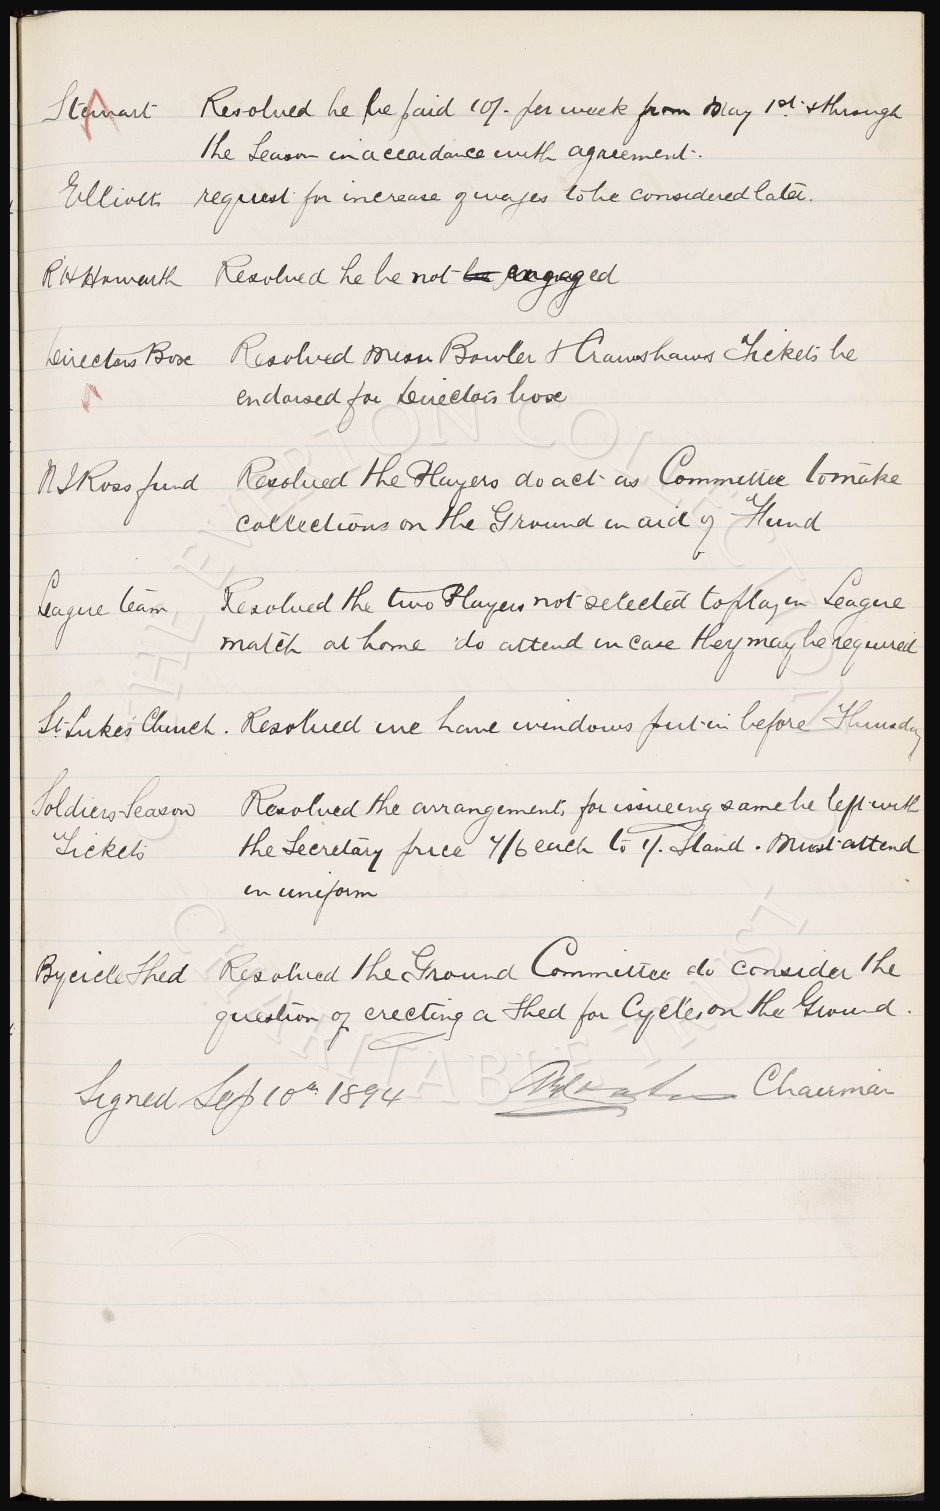 Stewart Resolved he be paid 10/- per week from May 1st & through
the Season in accordance with agreement.
Elliotts request for increase of wages to be considered later.
R H Howarth Resolved he be not be engaged
Directors Box Resolved Messrs Bowler & Crawshaws Tickets be
endorsed for Directors box
N J Ross fund Resolved the Players do act as Committee to make
collections on the Ground in aid of Fund
League team Resolved the two Players not selected to play in League
match at home do attend in case they may be required
St. Lukes Church. Resolved we have windows put in before Thursday
Soldiers Season Resolved the arrangements for issueing same be left with
Tickets the Secretary price 7/6 each to 1/- Stand. Must attend
in uniform
Bycicle Shed Resolved the Ground Committee do consider the
question of erecting a Shed for Cycles on the Ground.
Signed Sep 10th 1894 Chairman
THE EVERTON COLLECTION
CHARITABLE TRUST